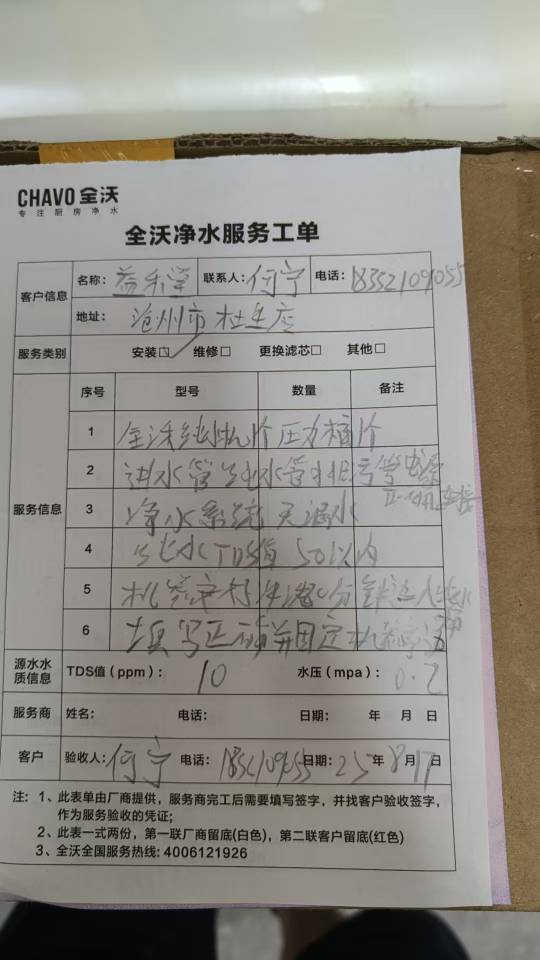 CHAVO 全沃
专注厨房净水
全沃净水服务工单
客户信息
名称: 益禾堂 联系人: 何宁 电话: 18332109055
地址: 沧州市杜生店
服务类别 安装☑ 维修□ 更换滤芯□ 其他□
服务信息
序号 型号 数量 备注
1 全沃纯水机1个 压力桶1个
2 进水管 纯水管
3 净水系统无漏水
4 纯水TDS值 50以内
5 机器
6 填写正确并固定
源水水质信息 TDS值(ppm): 10 水压(mpa): 0.2
服务商 姓名: 电话: 日期: 年 月 日
客户 验收人: 何宁 电话: 日期: 25年8月17日
注: 1、此表单由厂商提供，服务商完工后需要填写签字，并找客户验收签字，
作为服务验收的凭证;
2、此表一式两份，第一联厂商留底(白色)，第二联客户留底(红色)
3、全沃全国服务热线: 4006121926